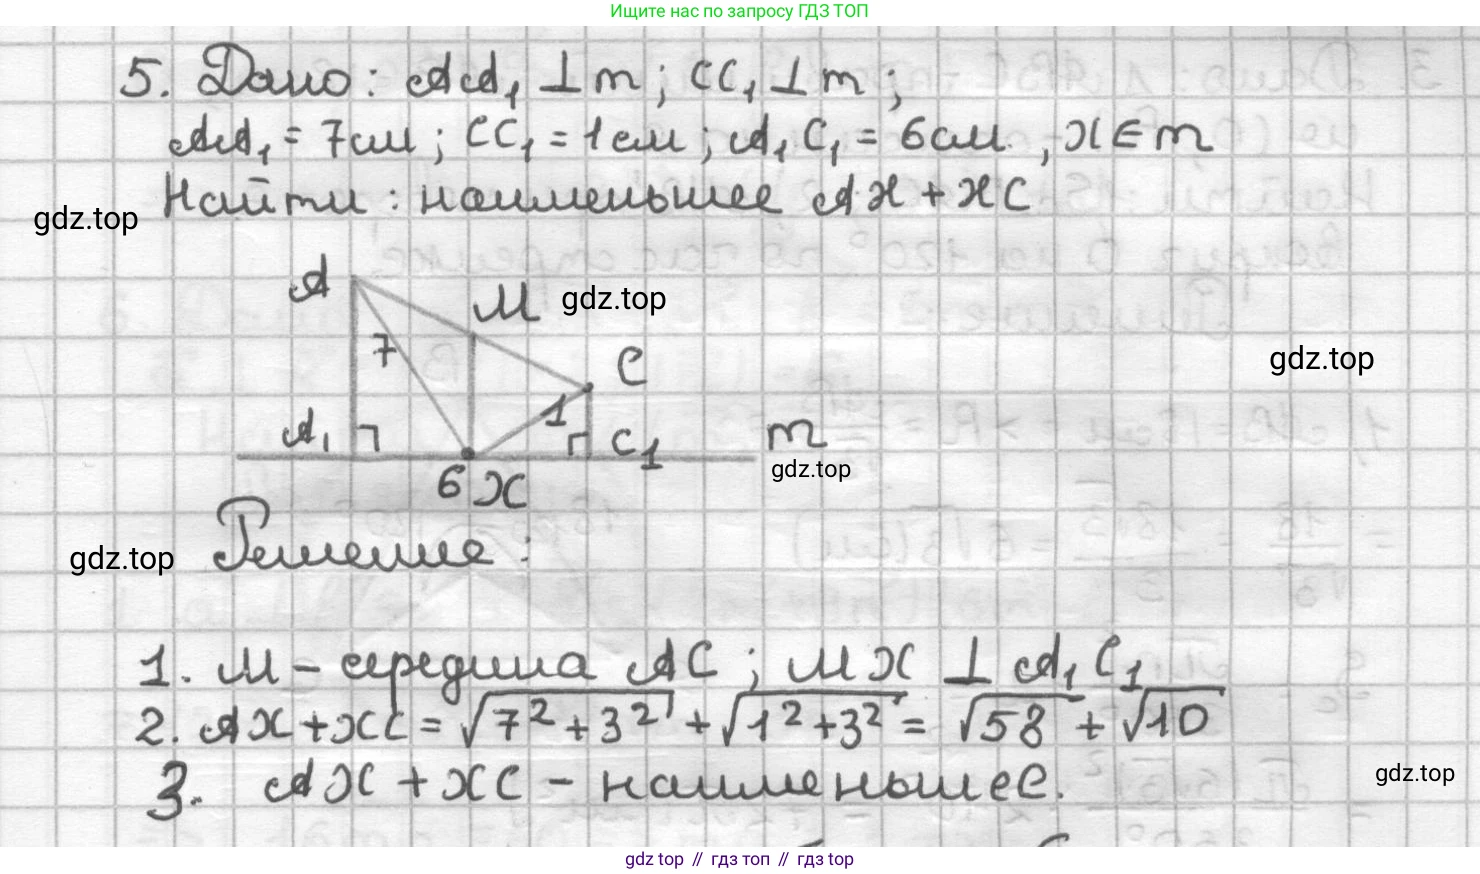 Ищите нас по запросу ГДЗ ТОП
5. Дано: AA₁ ⊥ m; CC₁ ⊥ m;
AA₁ = 7см; CC₁ = 1см; A₁C₁ = 6см, X ∈ m
Найти: наименьшее AX + XC
gdz.top
A
M
gdz.top
7
C
gdz.top
1
A₁
C₁
m
gdz.top
6
X
Решение:
gdz.top
1. M – середина AC; MX ⊥ A₁C₁
2. AX + XC = √(7² + 3²) + √(1² + 3²) = √58 + √10
3. AX + XC – наименьшее.
gdz.top
gdz top // гдз топ // gdz top